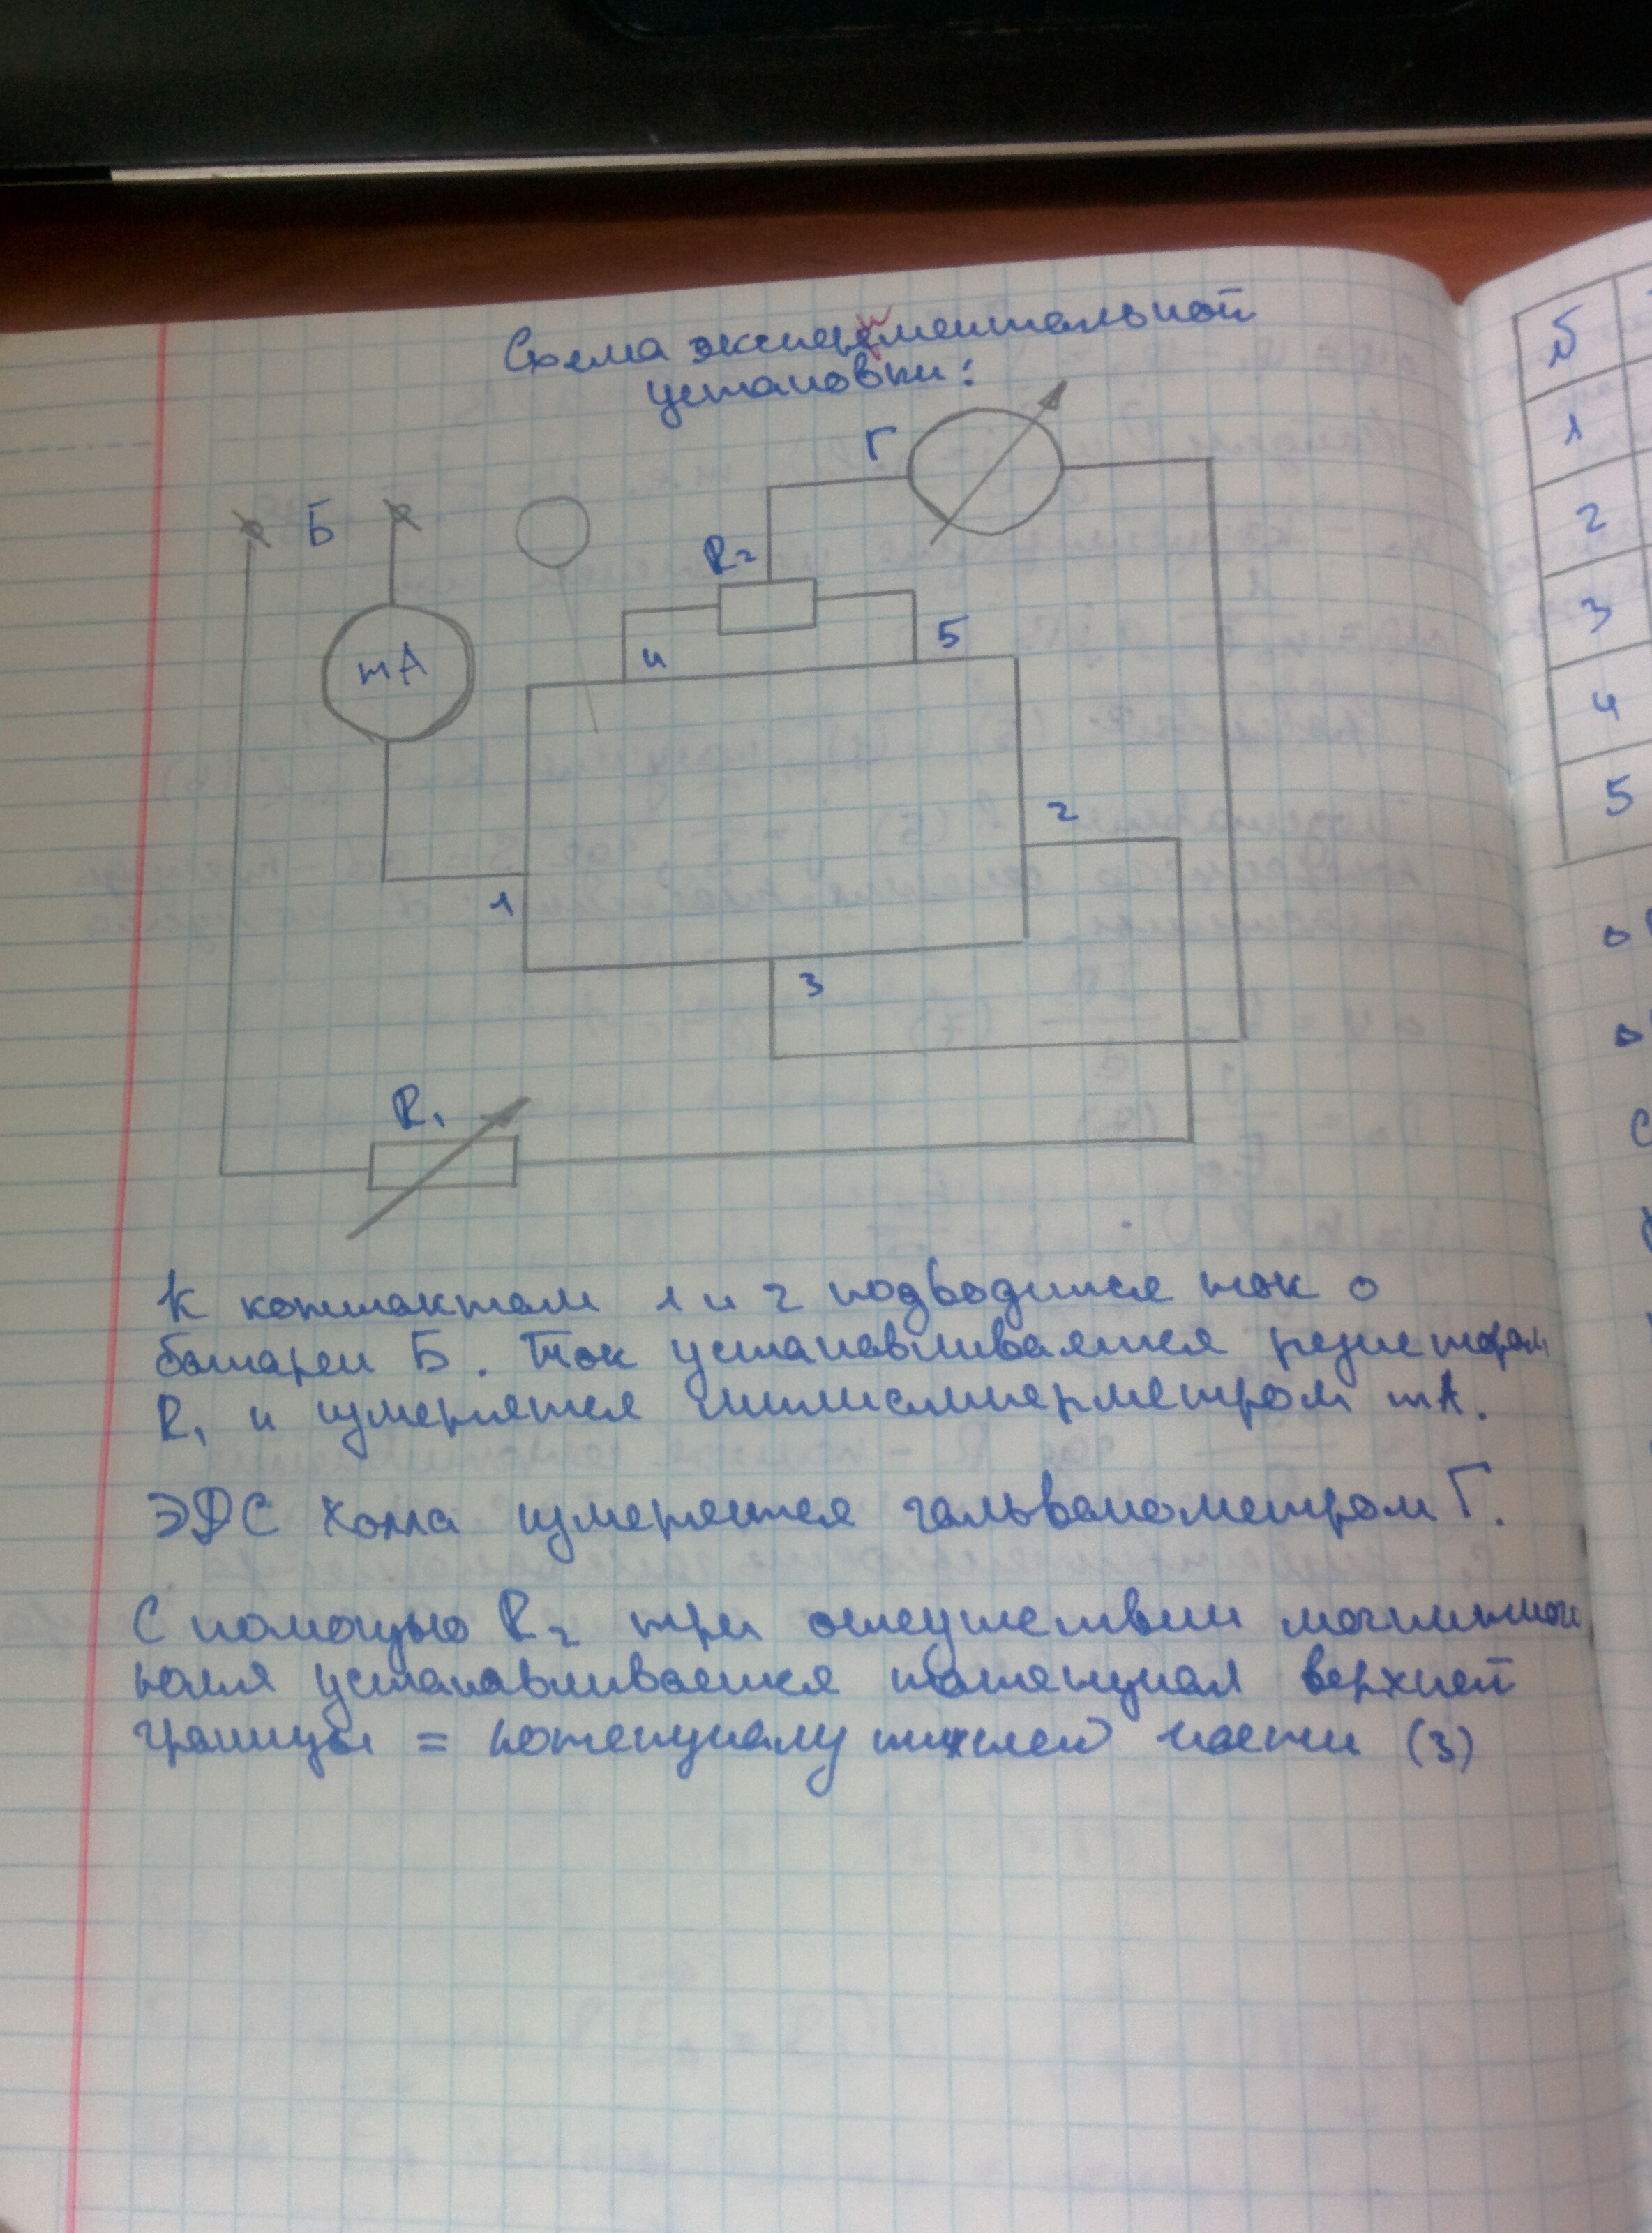 Схема экспериментальной
установки:
Г
Б
R₂
mA
4
5
2
1
3
R₁
К контактам 1 и 2 подводится ток о
батареи Б. Ток устанавливается резистором
R₁ и измеряется миллиамперметром mA.
ЭДС Холла измеряется гальванометром Г.
С помощью R₂ при отсутствии магнитного
поля устанавливается потенциал верхней
границы = потенциалу нижней части (3)
N
1
2
3
4
5